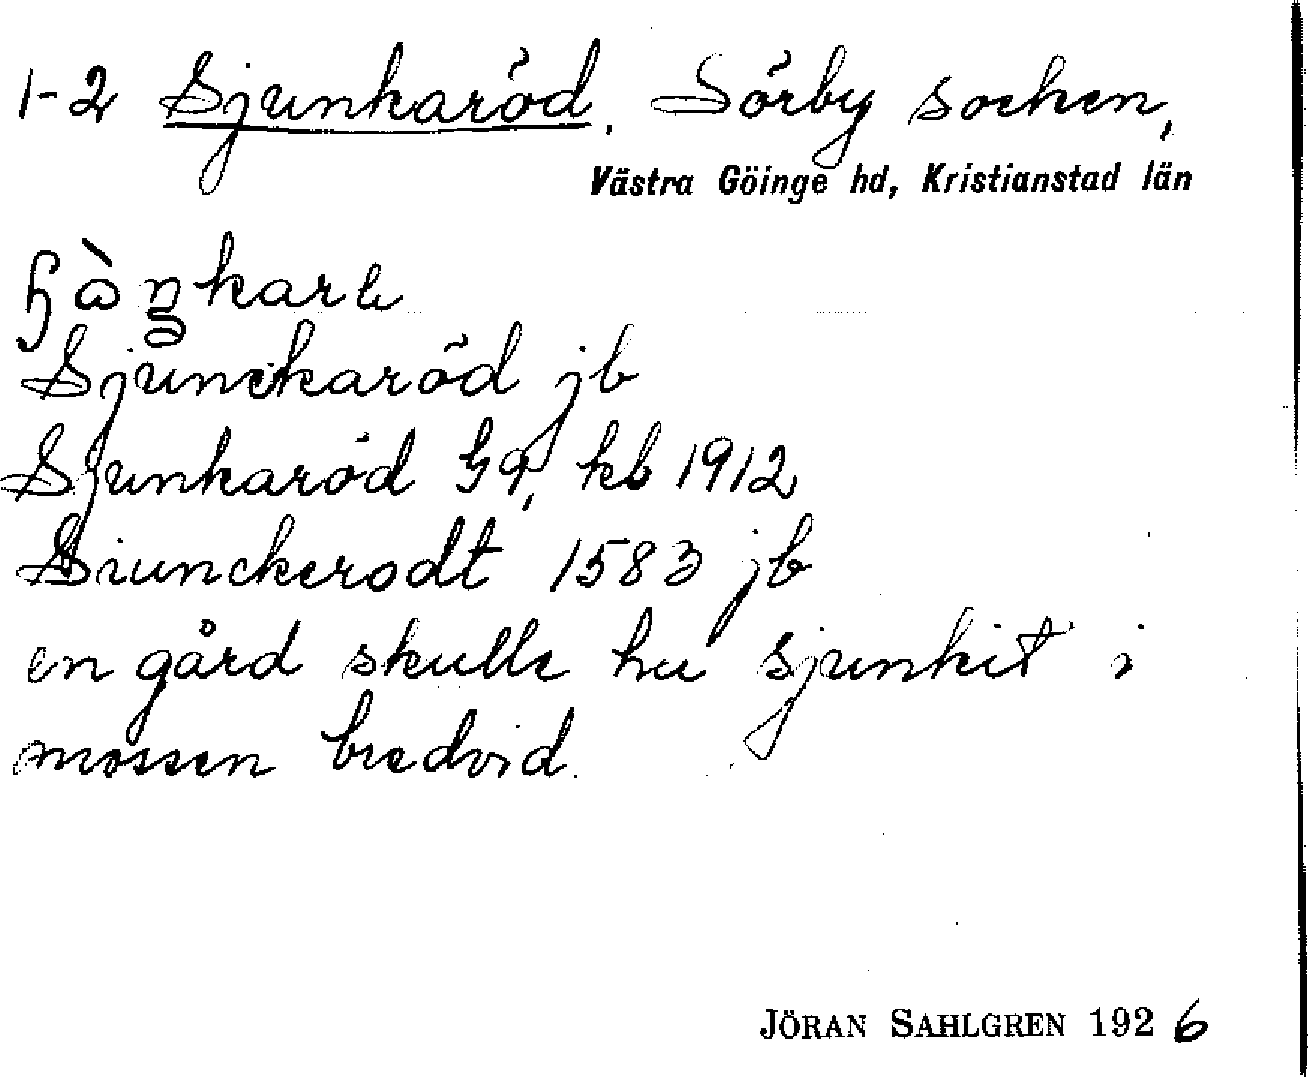 1-2 Sjunkaröd. Sörby socken,
Västra Göinge hd, Kristianstad län
Sjunckaröd jb
Sjunkaröd Ga, kb 1912
Siunckerodt 1583 jb
en gård skulle ha sjunkit i
mossen bredvid.
JÖRAN SAHLGREN 1926